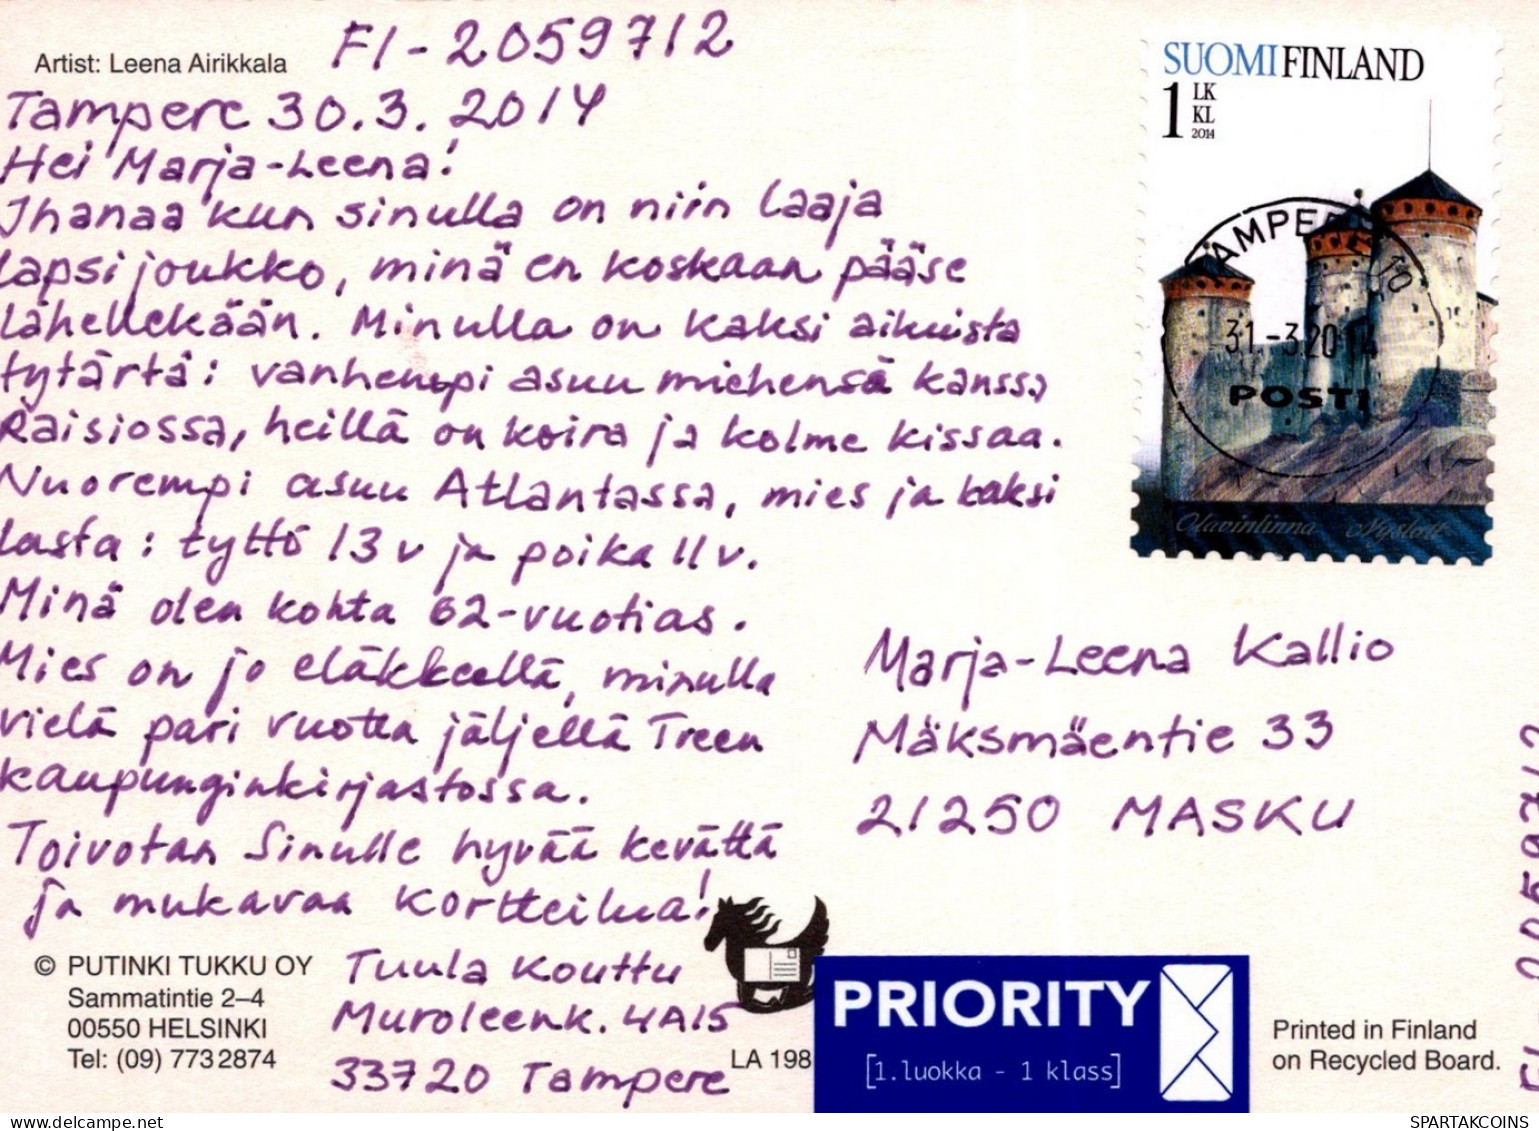 Artist: Leena Airikkala
FI-2059712
Tampere 30.3.2014
Hei Marja-Leena!
Ihanaa kun sinulla on niin laaja
lapsijoukko, minä en koskaan pääse
lähellekään. Minulla on kaksi aikuista
tytärtä: vanhempi asuu miehensä kanssa
Raisiossa, heillä on koira ja kolme kissaa.
Nuorempi asuu Atlantassa, mies ja kaksi
lasta: tyttö 13 v ja poika 11 v.
Minä olen kohta 62-vuotias.
Mies on jo eläkkeellä, minulla
vielä pari vuotta jäljellä Treen
kaupunginkirjastossa.
Toivotan Sinulle hyvää kevättä
ja mukavaa kortteilua!
Tuula Kouttu
Muroleenk. 4A15
33720 Tampere
© PUTINKI TUKKU OY
Sammatintie 2–4
00550 HELSINKI
Tel: (09) 773 2874
LA 198
SUOMI FINLAND
1 LK
KL
2014
31.-3.2014
POSTI
Olavinlinna Nyslott
Marja-Leena Kallio
Mäksmäentie 33
21250 MASKU
PRIORITY
[1.luokka - 1 klass]
Printed in Finland
on Recycled Board.
delcampe.net
SPARTAKCOINS